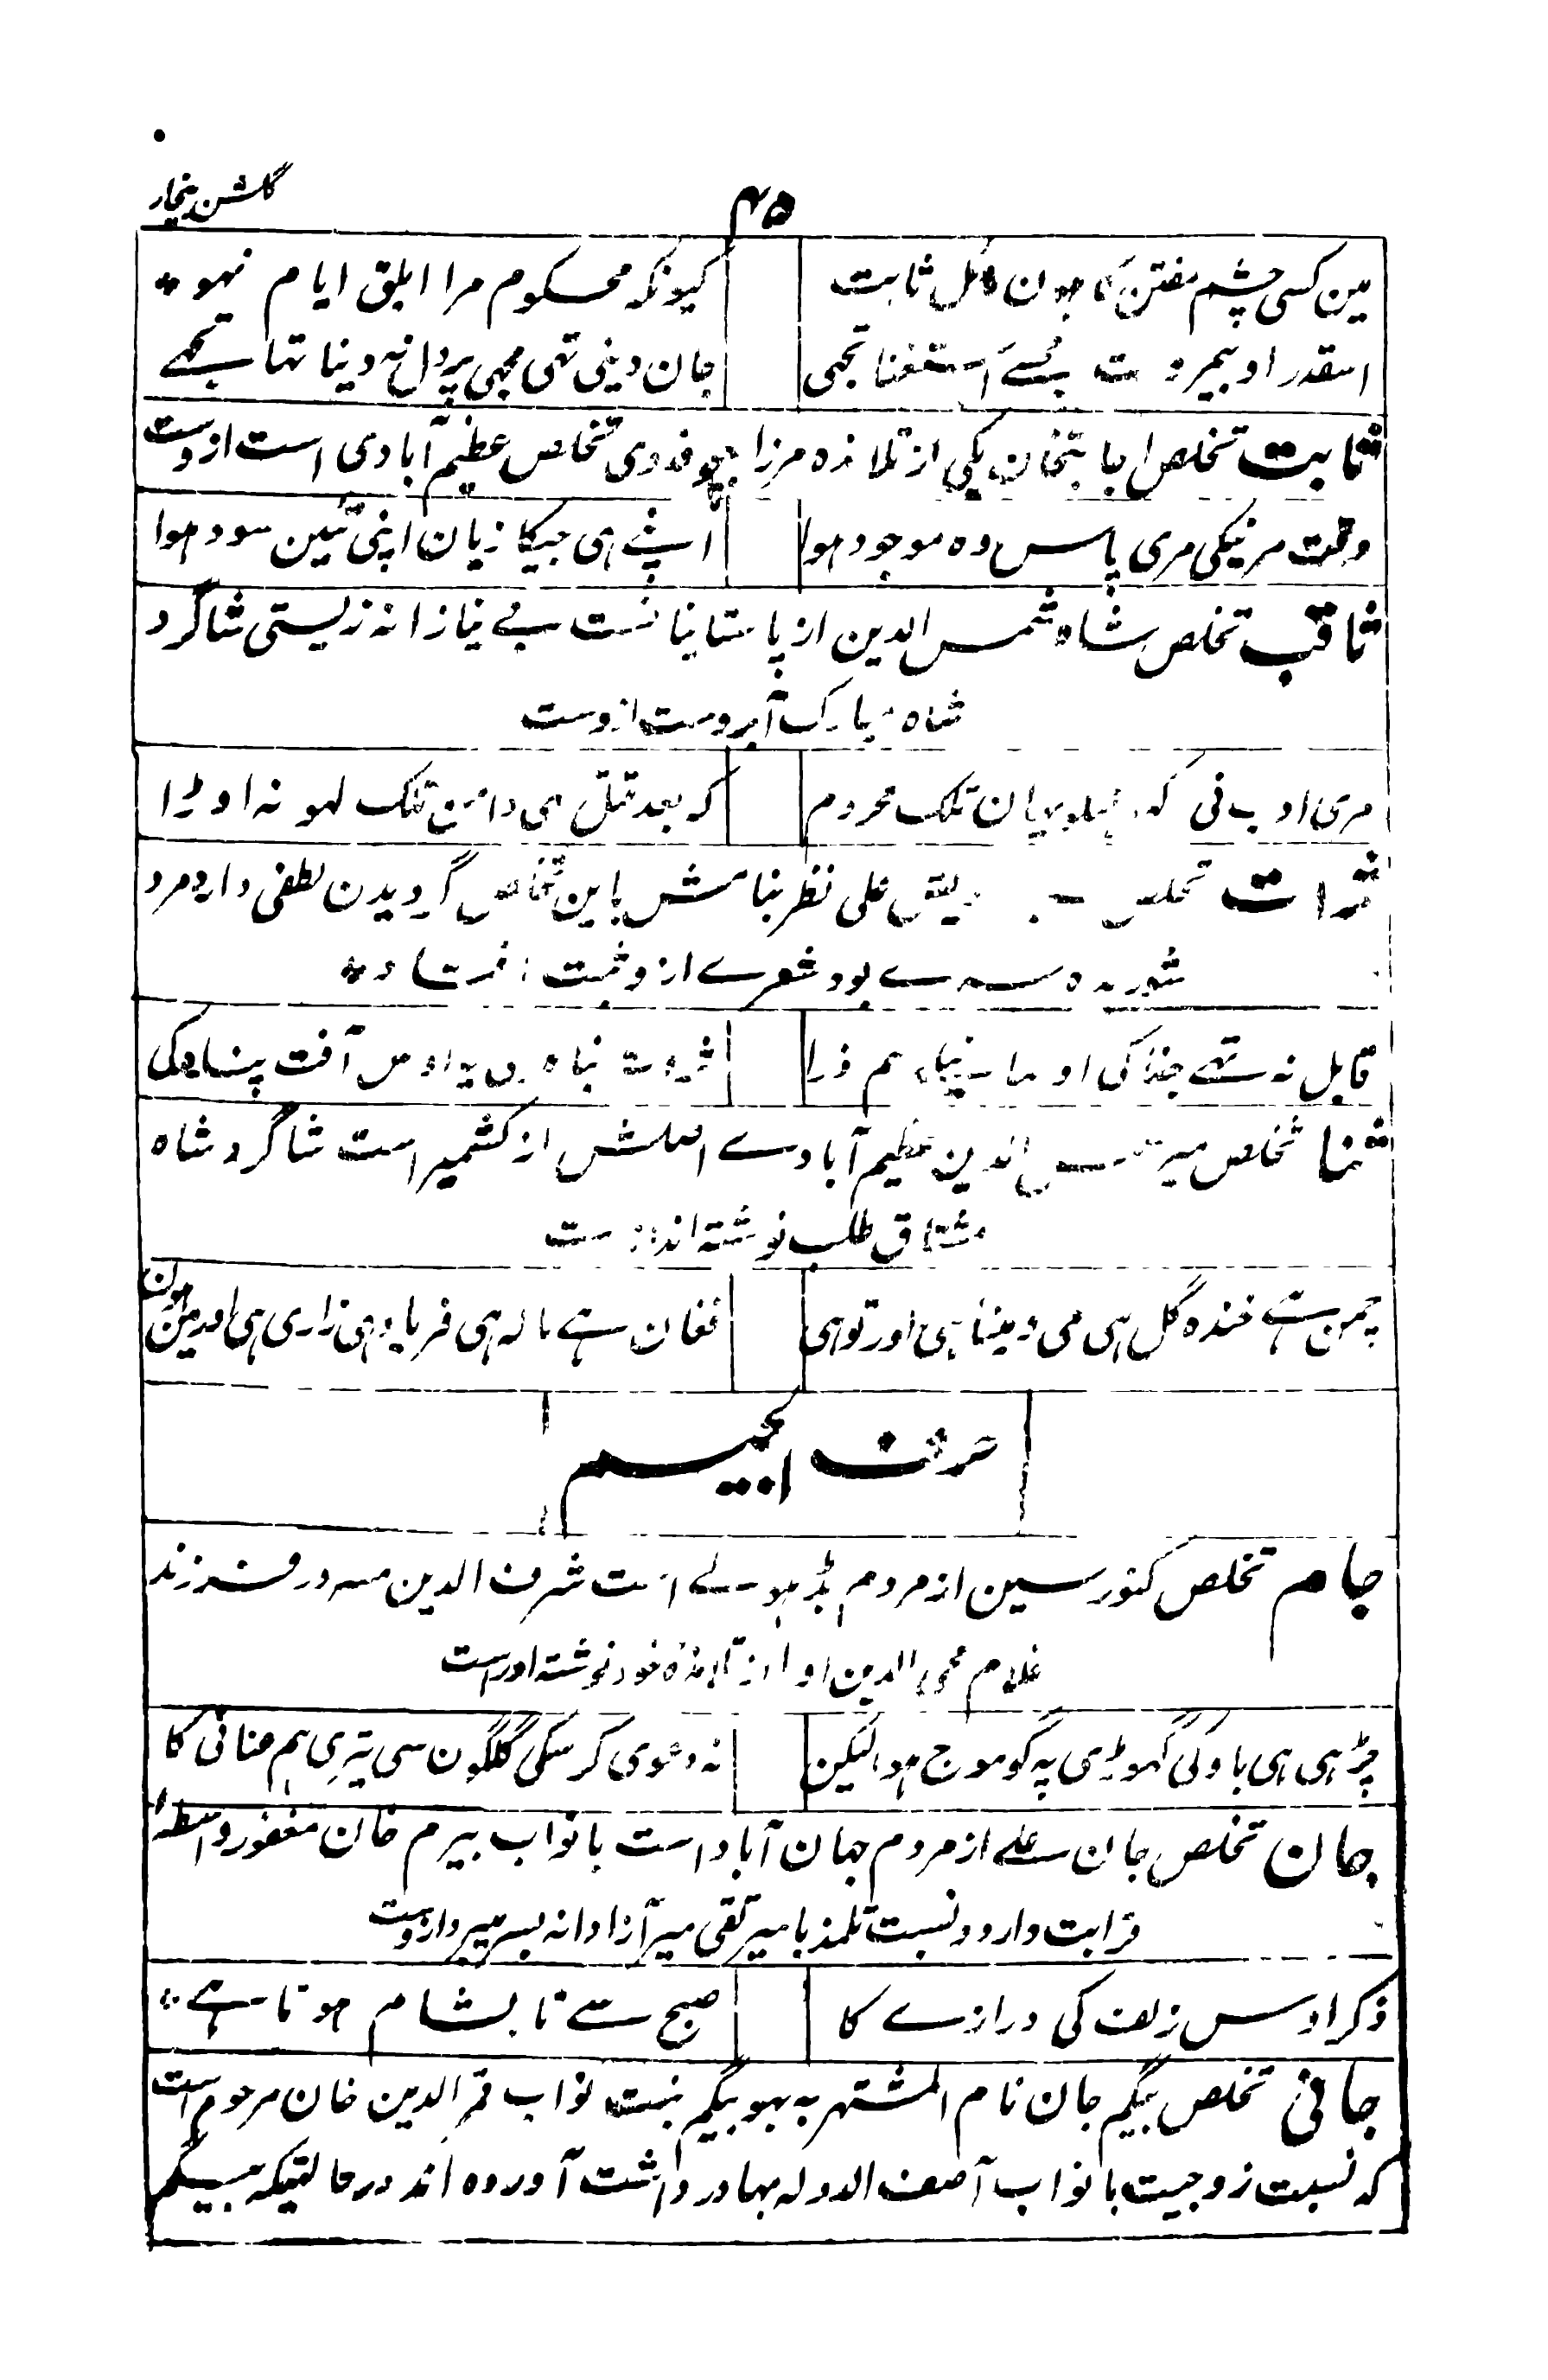 گلشن بیخار
۴۵
مین کسی چشم مفتن کا جون مائل ثابت کیونکہ محکوم مرا ابلق ایام نہو
اسقدر او بیمروت ہے استغنا تجھی جان دینی تھی مجھی پر دل نہ دینا تہا تجھے
ثابت تخلص اجابتخان یکی از تلامذہ مرزا بھچو فدوی تخلص عظیم آبادی است ازوست
وقت مرنیکی مری پاس وہ موجود ہوا اپنے ہی جیکا زیان اپنی تئین سود ہوا
ثاقب تخلص شاہ شمس الدین از پاستانیانست بے نیازانہ زیستی شاگرد
شاہ مبارک آبروست ازوست
مری ادب نی کہ یان تلک محروم کہ بعد قتل ہی دامن تلک لہو نہ اوڑا
ثروت تخلص علی نظر بنامش باین تخلص گردیدن لطفی دارد مرد
شوریدہ سرے بود شعرے ازو ثبت افتاد
قابل نہ تہے جفا کی او ہم ذرا ثروت نباہ دی اوس آفت پناہ کی
ثنا تخلص میر شمس الدین عظیم آبادے اصلش از کشمیر است شاگرد شاہ
مشتاق طلب نوشتہ اند ازوست
چمن ہے خندہ گل ہی می و مینا ہی اور تو ہی فغان ہے نالہ ہی فریاد ہی زاری ہی اور مین ہون
حرف الجیم
جام تخلص کنور سین از مردم است شرف الدین سرور فرزند
غلام محی الدین او را از تلامذہ خود نوشتہ اوراست
چڑہی ہی باؤ کی گہوڑی پہ گو موج ہوا لیکن نہ دعوی کر سکی گلگون سی تیری ہم عنانی کا
جان تخلص جان علے از مردم جہان آباد است با نواب بیرم خان مغفور واسطۂ
قرابت دارد و نسبت تلمذ با میر تقی میر آزادانہ بسر میبرد ازوست
ذکر اوس زلف کی درازے کا صبح سے تا بشام ہوتا ہے
جانی تخلص بیگم جان نام المشتہر بہ بہو بیگم بنت نواب قمر الدین خان مرحوم است
کہ نسبت زوجیت با نواب آصف الدولہ بہادر داشت آوردہ اند در حالتیکہ بیگم